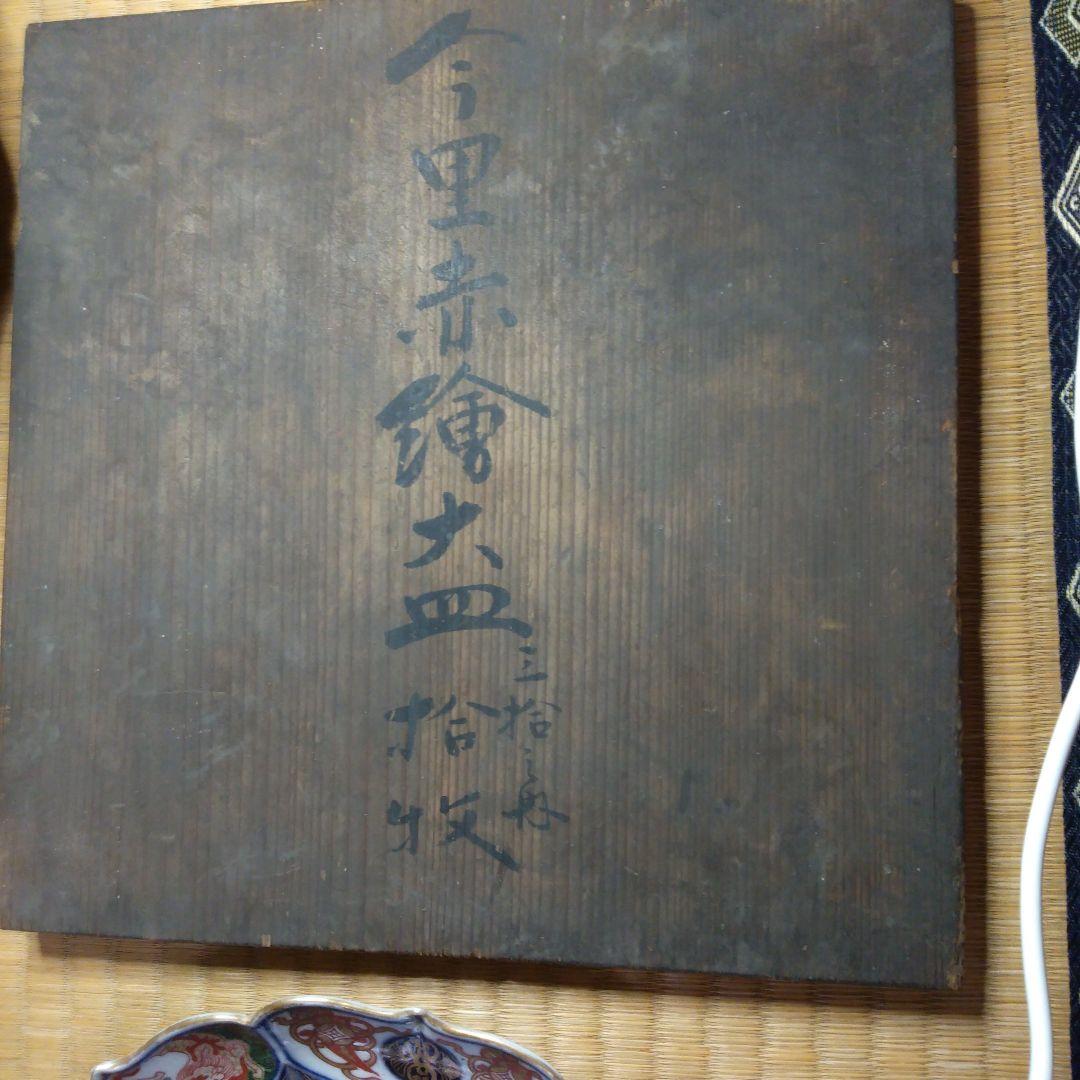 今里赤繪大皿拾枚
三拾之